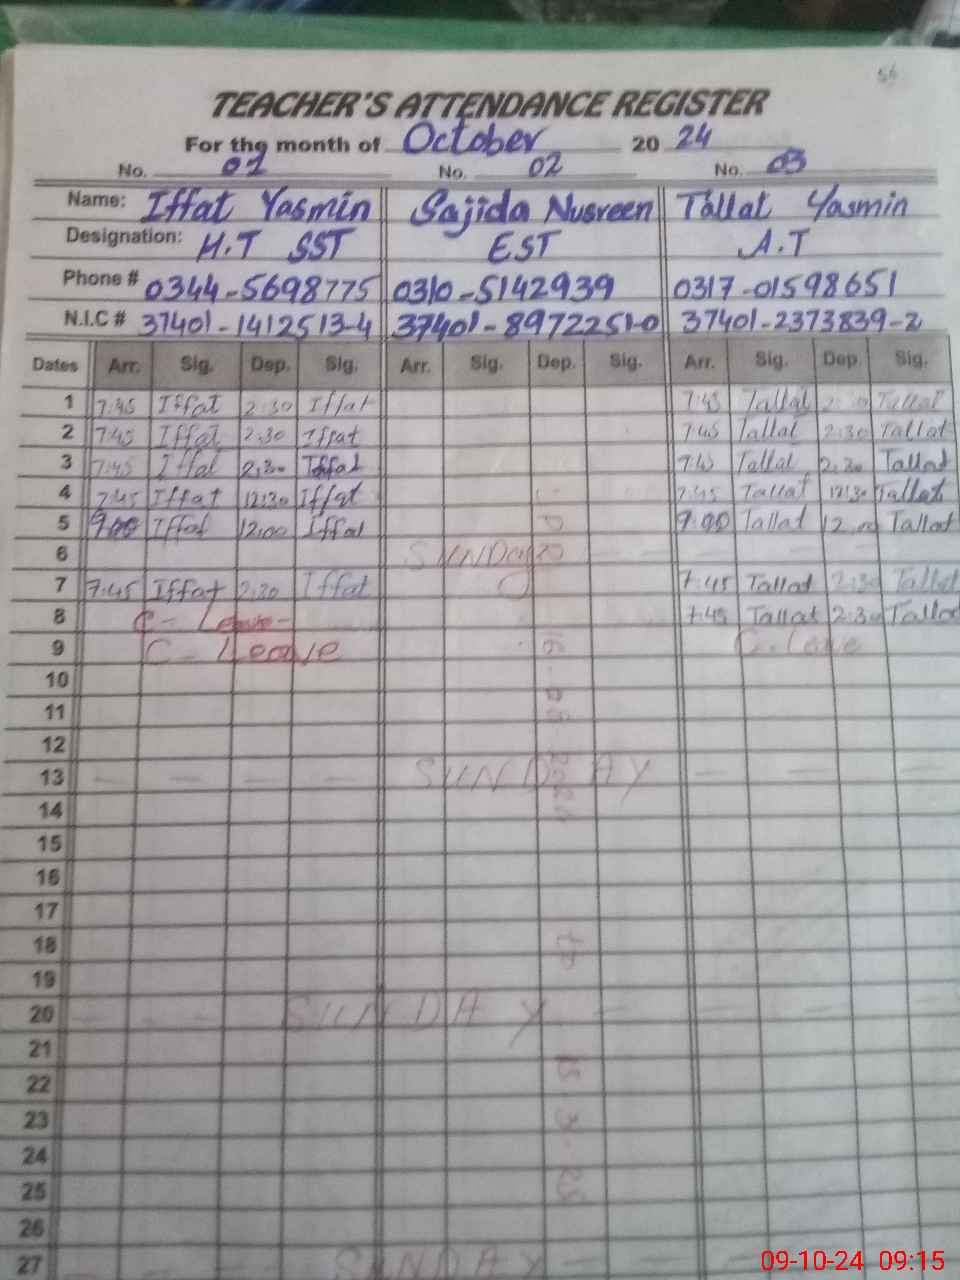 56
TEACHER'S ATTENDANCE REGISTER
For the month of October 20 24
No. 01 No. 02 No. 03
Name: Iffat Yasmin Sajida Nusreen Tallat Yasmin
Designation: H.T SST EST A.T
Phone # 0344-5698775 0310-5142939 0317-01598651
N.I.C # 37401-1412513-4 37401-8972251-0 37401-2373839-2
Dates Arr. Sig. Dep. Sig. Arr. Sig. Dep. Sig. Arr. Sig. Dep. Sig.
1 7:45 Iffat 2:30 Iffat 7:45 Tallat 2:30 Tallat
2 7:45 Iffat 2:30 Iffat 7:45 Tallat 2:30 Tallat
3 7:45 Iffat 2:30 Iffat 7:45 Tallat 2:30 Tallat
4 7:45 Iffat 12:30 Iffat 7:45 Tallat 12:30 Tallat
5 9:00 Iffat 12:00 Iffat 9:00 Tallat 12:00 Tallat
6 SUNDay
7 7:45 Iffat 2:30 Iffat 7:45 Tallat 2:30 Tallat
8 C- Leave- 7:45 Tallat 2:30 Tallat
9 C- Leave C. Leve
10
11
12
13 - - - - SUNDAY - - -
14
15
16
17
18
19
20 - - - SUNDAY - - - -
21
22
23
24
25
26
27 SUNDAY
09-10-24 09:15